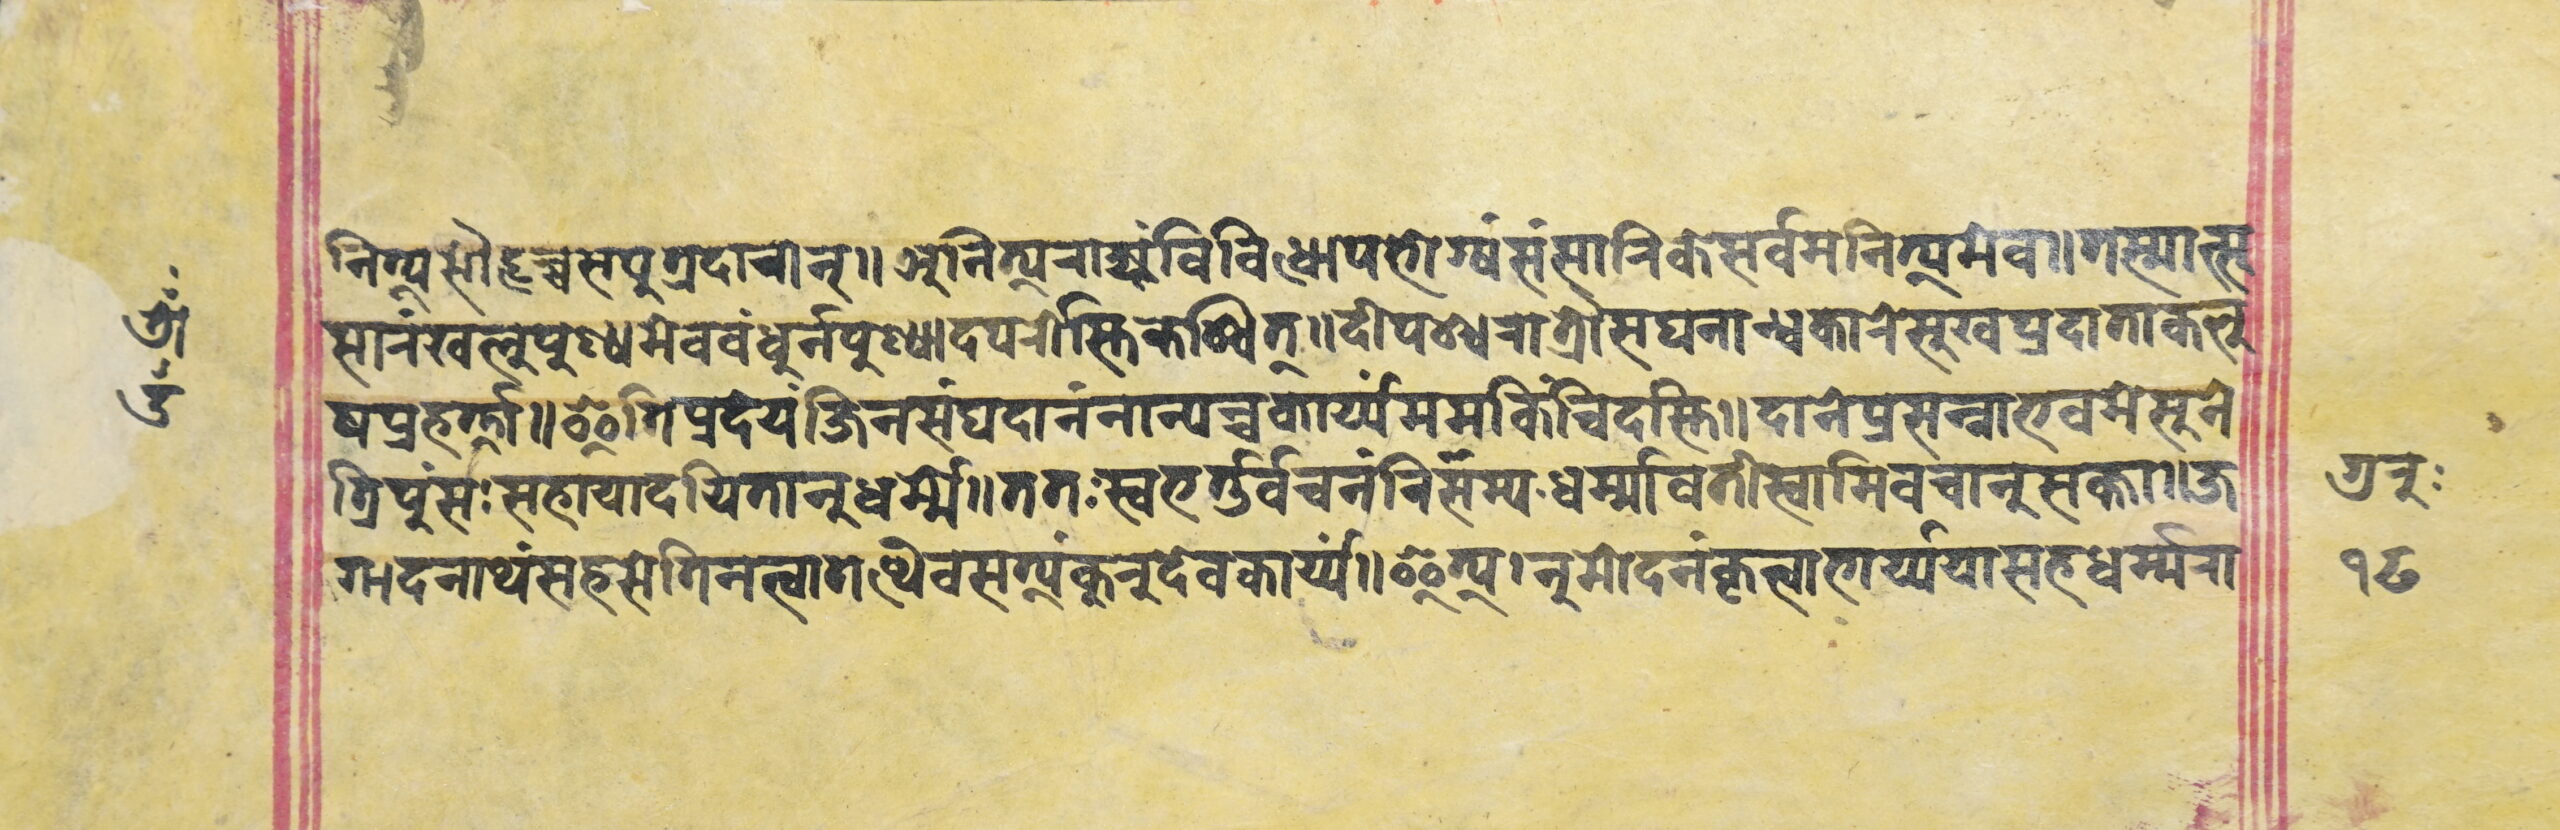 नित्यसौहृच्चसपुत्रदारान्॥अनित्यराज्यंविविधोपभोग्यंसंसारिकेसर्वमनित्यमेव॥तस्मात्सु
सारंखलुपुण्यमेवबंधुर्नपुण्यादपरोस्तिकश्चित्॥दीपश्चरात्रौसघनान्धकारेसुखप्रदाताकलु
षप्रहर्त्ता॥इतिप्रदेयंजिनसंघदानंनान्यच्चकार्य्यंममकिंचिदस्ति॥दानेप्रसन्नाभवमेसुने
त्रिपुंसःसहायादयितानुधर्म्मे॥ततःस्वभर्तुर्वचनंनिसम्यधर्म्मावतीस्वामिवचानुसक्ता॥ज
गादनाथंसहसेतिनत्वातथैवसत्यंकुरुदेवकार्य्यं॥इत्यानुमोदनंकृत्वाभार्य्ययासहधर्म्मरा
गुरुः
१८